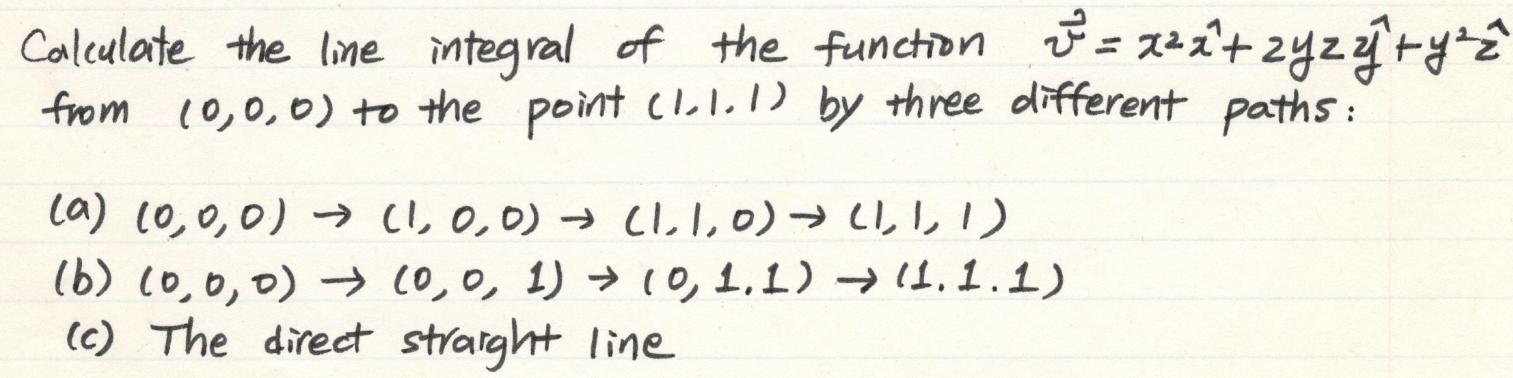 Calculate the line integral of the function v⃗ = x²x̂ + 2yzŷ + y²ẑ
from (0,0,0) to the point (1.1.1) by three different paths:
(a) (0,0,0) → (1,0,0) → (1.1,0) → (1,1,1)
(b) (0,0,0) → (0,0,1) → (0,1.1) → (1.1.1)
(c) The direct straight line